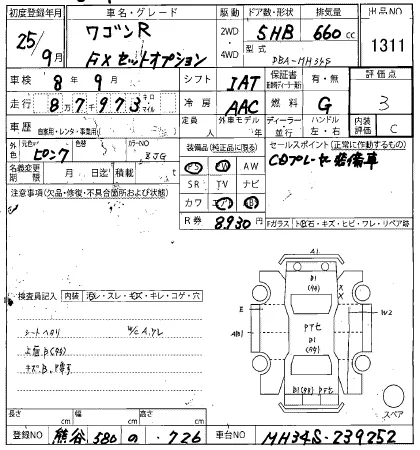 初度登録年月 車名・グレード 駆動 ドア数・形状 排気量 出品NO
25年 9月 ワゴンR 2WD 4WD 5HB 660cc 1311
FXセットオプション 型式 DBA-MH34S
車検 8年 9月 シフト IAT 保証書 有・無 評価点
走行 8万7千973 キロ マイル 冷房 AAC 燃料 G 3
車歴 自家用・レンタ・事業用 定員 人 外車モデル 年 ディーラー 並行 ハンドル 左・右 内装評価 C
外色 元色 ピンク 色替 カラーNO BJG 装備品(純正品に限る) セールスポイント(正常に作動するもの)
名義変更期限 月 日迄 積載 t PS PW AW CDプレーヤー装備車
注意事項(欠品・修復・不具合箇所および状態) SR TV ナビ
カワ エアB
R券 8930円 Fガラス トビ石・キズ・ヒビ・ワレ・リペア跡
A1
B1
検査員記入 内装 汚レ・スレ・キズ・キレ・コゲ・穴
E W2
シートヘタリ
AB1 PTセ
B1
スペア
長さ cm 幅 cm 高さ cm
登録NO 熊谷 580 の ・726 車台NO MH34S-239252